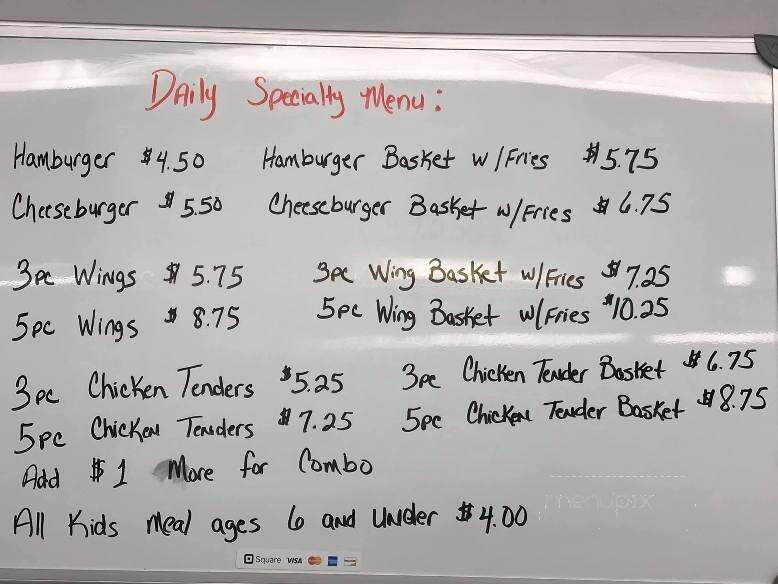 Daily Specialty Menu:
Hamburger $4.50 Hamburger Basket w/Fries $5.75
Cheeseburger $5.50 Cheeseburger Basket w/Fries $6.75
3pc Wings $5.75 3pc Wing Basket w/Fries $7.25
5pc Wings $8.75 5pc Wing Basket w/Fries $10.25
3pc Chicken Tenders $5.25 3pc Chicken Tender Basket $6.75
5pc Chicken Tenders $7.25 5pc Chicken Tender Basket $8.75
Add $1 More for Combo
menupix
All Kids Meal ages 6 and Under $4.00
Square VISA